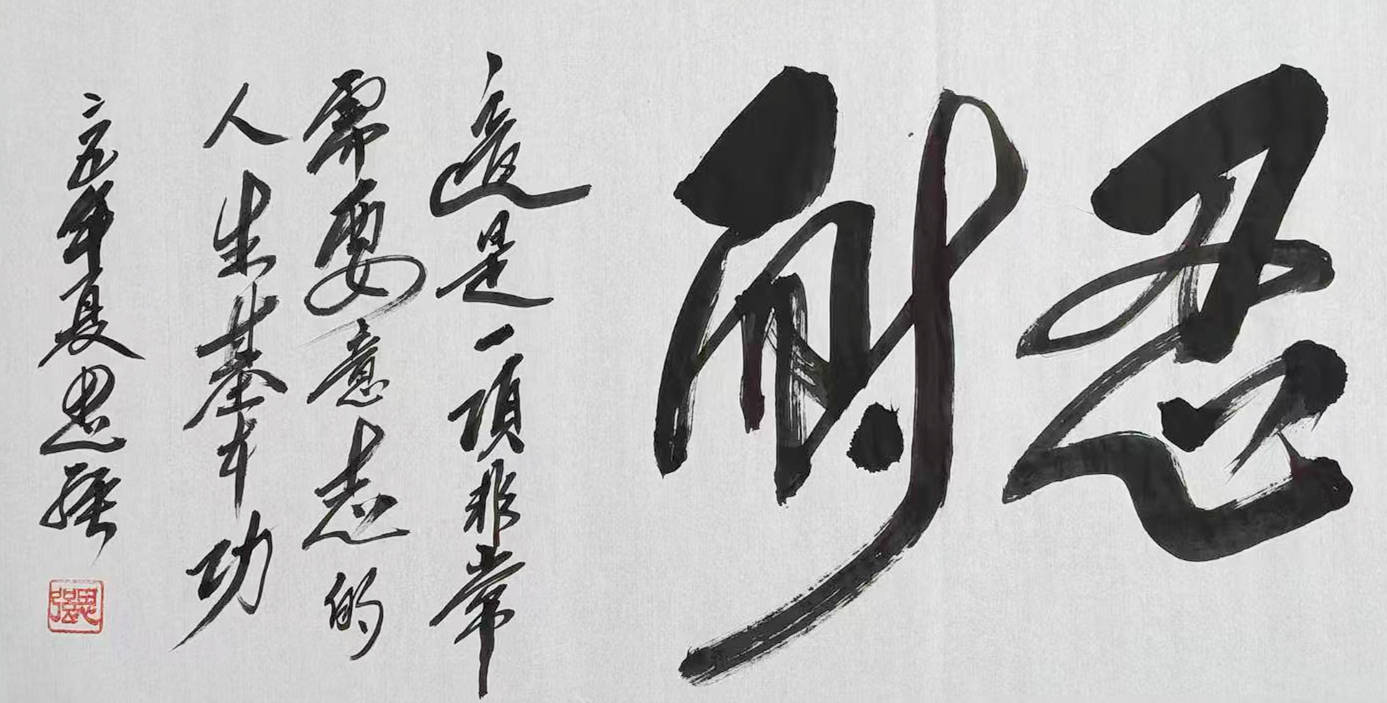 忍耐
這是一項非常
需要意志的
人生基本功
二五年夏思强
思强